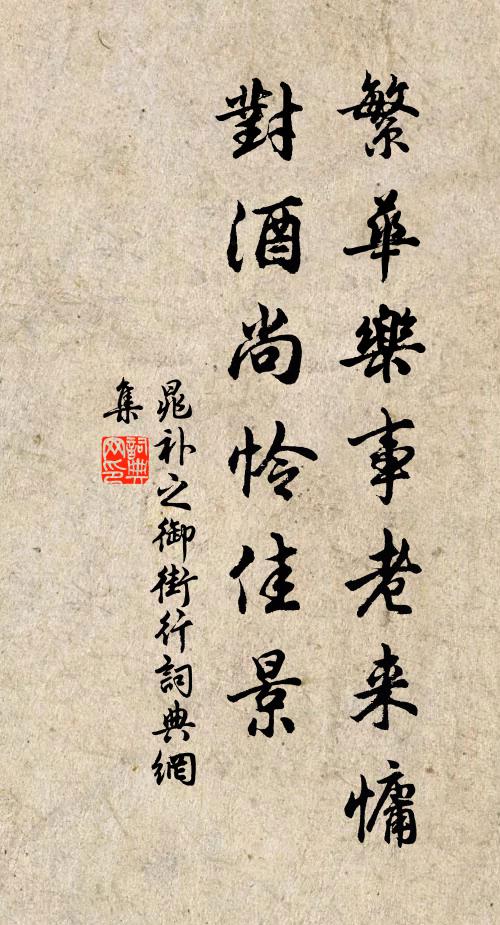 繁華樂事老来慵
對酒尚怜佳景
晁补之御街行詞典網
集
詞典网印